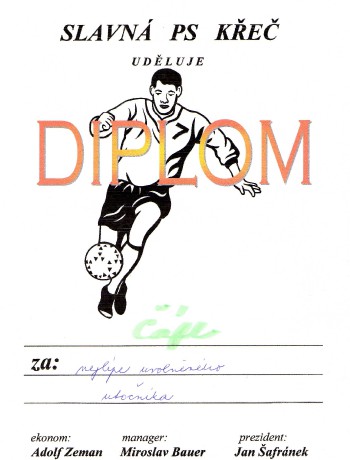 SLAVNÁ PS KŘEČ
UDĚLUJE
DIPLOM
7
Čáje
za: nejlépe uvolněného
útočníka
ekonom: manager: prezident:
Adolf Zeman Miroslav Bauer Jan Šafránek